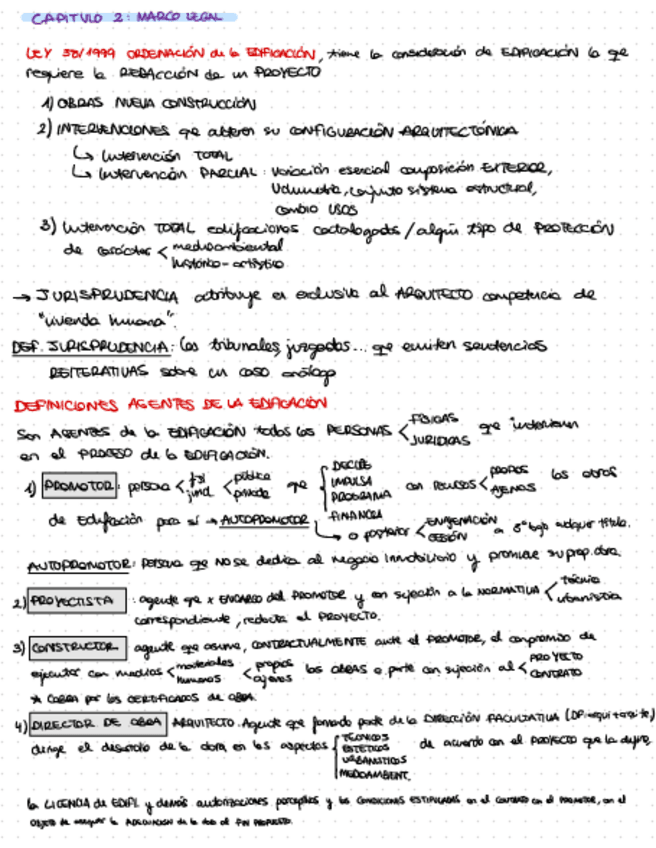 CAPITULO 2: MARCO LEGAL
LEY 38/1999 ORDENACIÓN de la EDIFICACIÓN, tiene la consideración de EDIFICACIÓN lo que
requiere la REDACCIÓN de un PROYECTO
1) OBRAS NUEVA CONSTRUCCIÓN
2) INTERVENCIONES que alteren su CONFIGURACIÓN ARQUITECTÓNICA
↳ Intervención TOTAL
↳ Intervención PARCIAL: Variación esencial composición EXTERIOR,
Volumetría, conjunto sistema estructural,
cambio USOS
3) Intervención TOTAL edificaciones catalogadas / algún tipo de PROTECCIÓN
de carácter < medioambiental
histórico-artístico
→ JURISPRUDENCIA atribuye en exclusiva al ARQUITECTO competencia de
"vivienda humana".
DEF. JURISPRUDENCIA: Los tribunales, juzgados... que emiten sentencias
REITERATIVAS sobre un caso análogo
DEFINICIONES AGENTES DE LA EDIFICACIÓN
Son AGENTES de la EDIFICACIÓN todas las PERSONAS < FÍSICAS JURÍDICAS que intervienen
en el PROCESO de la EDIFICACIÓN.
1) PROMOTOR: persona < fsi jurid < pública privada que { DECIDE IMPULSA PROGRAMA FINANCIA con RECURSOS < PROPIOS AJENOS las obras
de Edificación para sí → AUTOPROMOTOR
↳ o posterior < ENAJENACIÓN CESIÓN a 3º bajo cualquier título.
AUTOPROMOTOR: persona que NO se dedica al negocio inmobiliario y promueve su prop. obra.
2) PROYECTISTA: agente que x ENCARGO del PROMOTOR y con sujeción a la NORMATIVA < técnica urbanística
correspondiente, redacta el PROYECTO.
3) CONSTRUCTOR agente que asume, CONTRACTUALMENTE ante el PROMOTOR, el compromiso de
ejecutar con medios < materiales humanos < propios ajenos las OBRAS o parte con sujeción al < PROYECTO CONTRATO
* COBRA por las CERTIFICADOS de OBRA.
4) DIRECTOR DE OBRA ARQUITECTO. Agente que formando parte de la DIRECCIÓN FACULTATIVA
dirige el desarrollo de la obra en los aspectos { TÉCNICOS ESTÉTICOS URBANÍSTICOS MEDIOAMBIENT. de acuerdo con el PROYECTO que la define,
la LICENCIA de EDIF. y demás autorizaciones preceptivas y las CONDICIONES ESTIPULADAS en el CONTRATO con el PROMOTOR, con el
OBJETO de asegurar la ADECUACIÓN de la obra al FIN PROPUESTO.